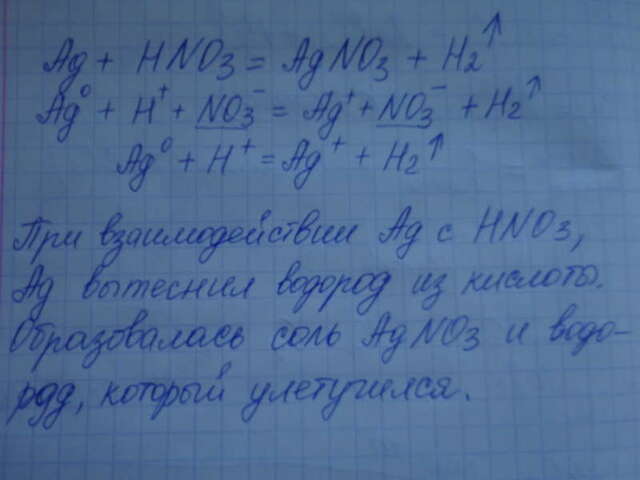 Ag + HNO3 = AgNO3 + H2↑
Ag⁰ + H⁺ + NO3⁻ = Ag⁺ + NO3⁻ + H2↑
Ag⁰ + H⁺ = Ag⁺ + H2↑
При взаимодействии Ag с HNO3,
Ag вытеснил водород из кислоты.
Образовалась соль AgNO3 и водо-
род, который улетучился.